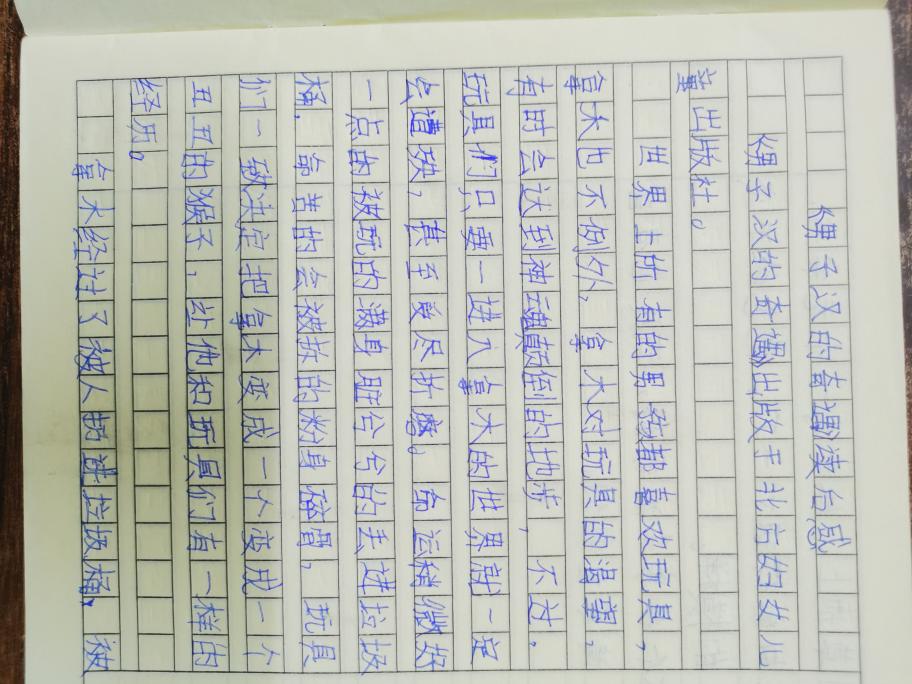 傀子汉的奇遇读后感
傀子汉的奇遇出版于北方妇女儿
童出版社。
世界上所有的男孩都喜欢玩具，
拿大也不例外，拿大对玩具的渴望，
有时会达到神魂颠倒的地步，不过，
玩具们只要一进入拿大的世界就一定
会遭殃，甚至受尽折磨。命运稍微好
一点的被玩的满身脏兮兮的丢进垃圾
桶，命苦的会被拆的粉身碎骨，玩具
们一致决定把拿大变成一个变成一个
丑丑的猴子，让他和玩具们有一样的
经历。
拿大经过了被人扔进垃圾桶，被